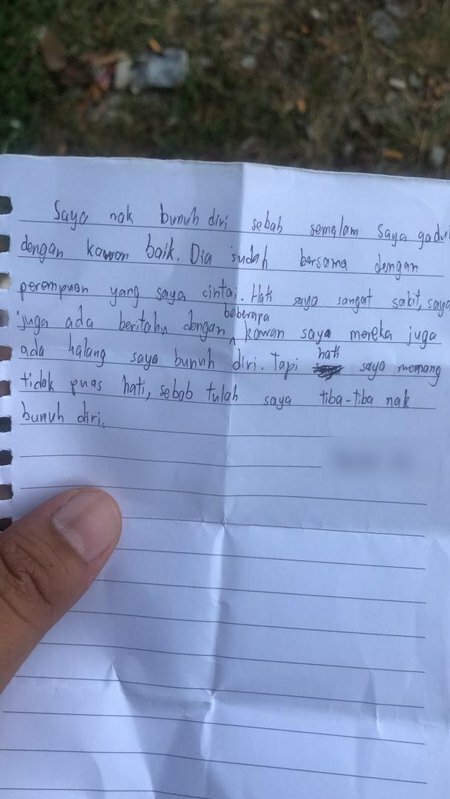 Saya nak bunuh diri sebab semalam saya gaduh
dengan kawan baik. Dia sudah bersama dengan
perempuan yang saya cintai. Hati saya sangat sakit, saya
juga ada beritahu dengan beberapa kawan saya mereka juga
ada halang saya bunuh diri. Tapi hati saya memang
tidak puas hati, sebab tulah saya tiba-tiba nak
bunuh diri.